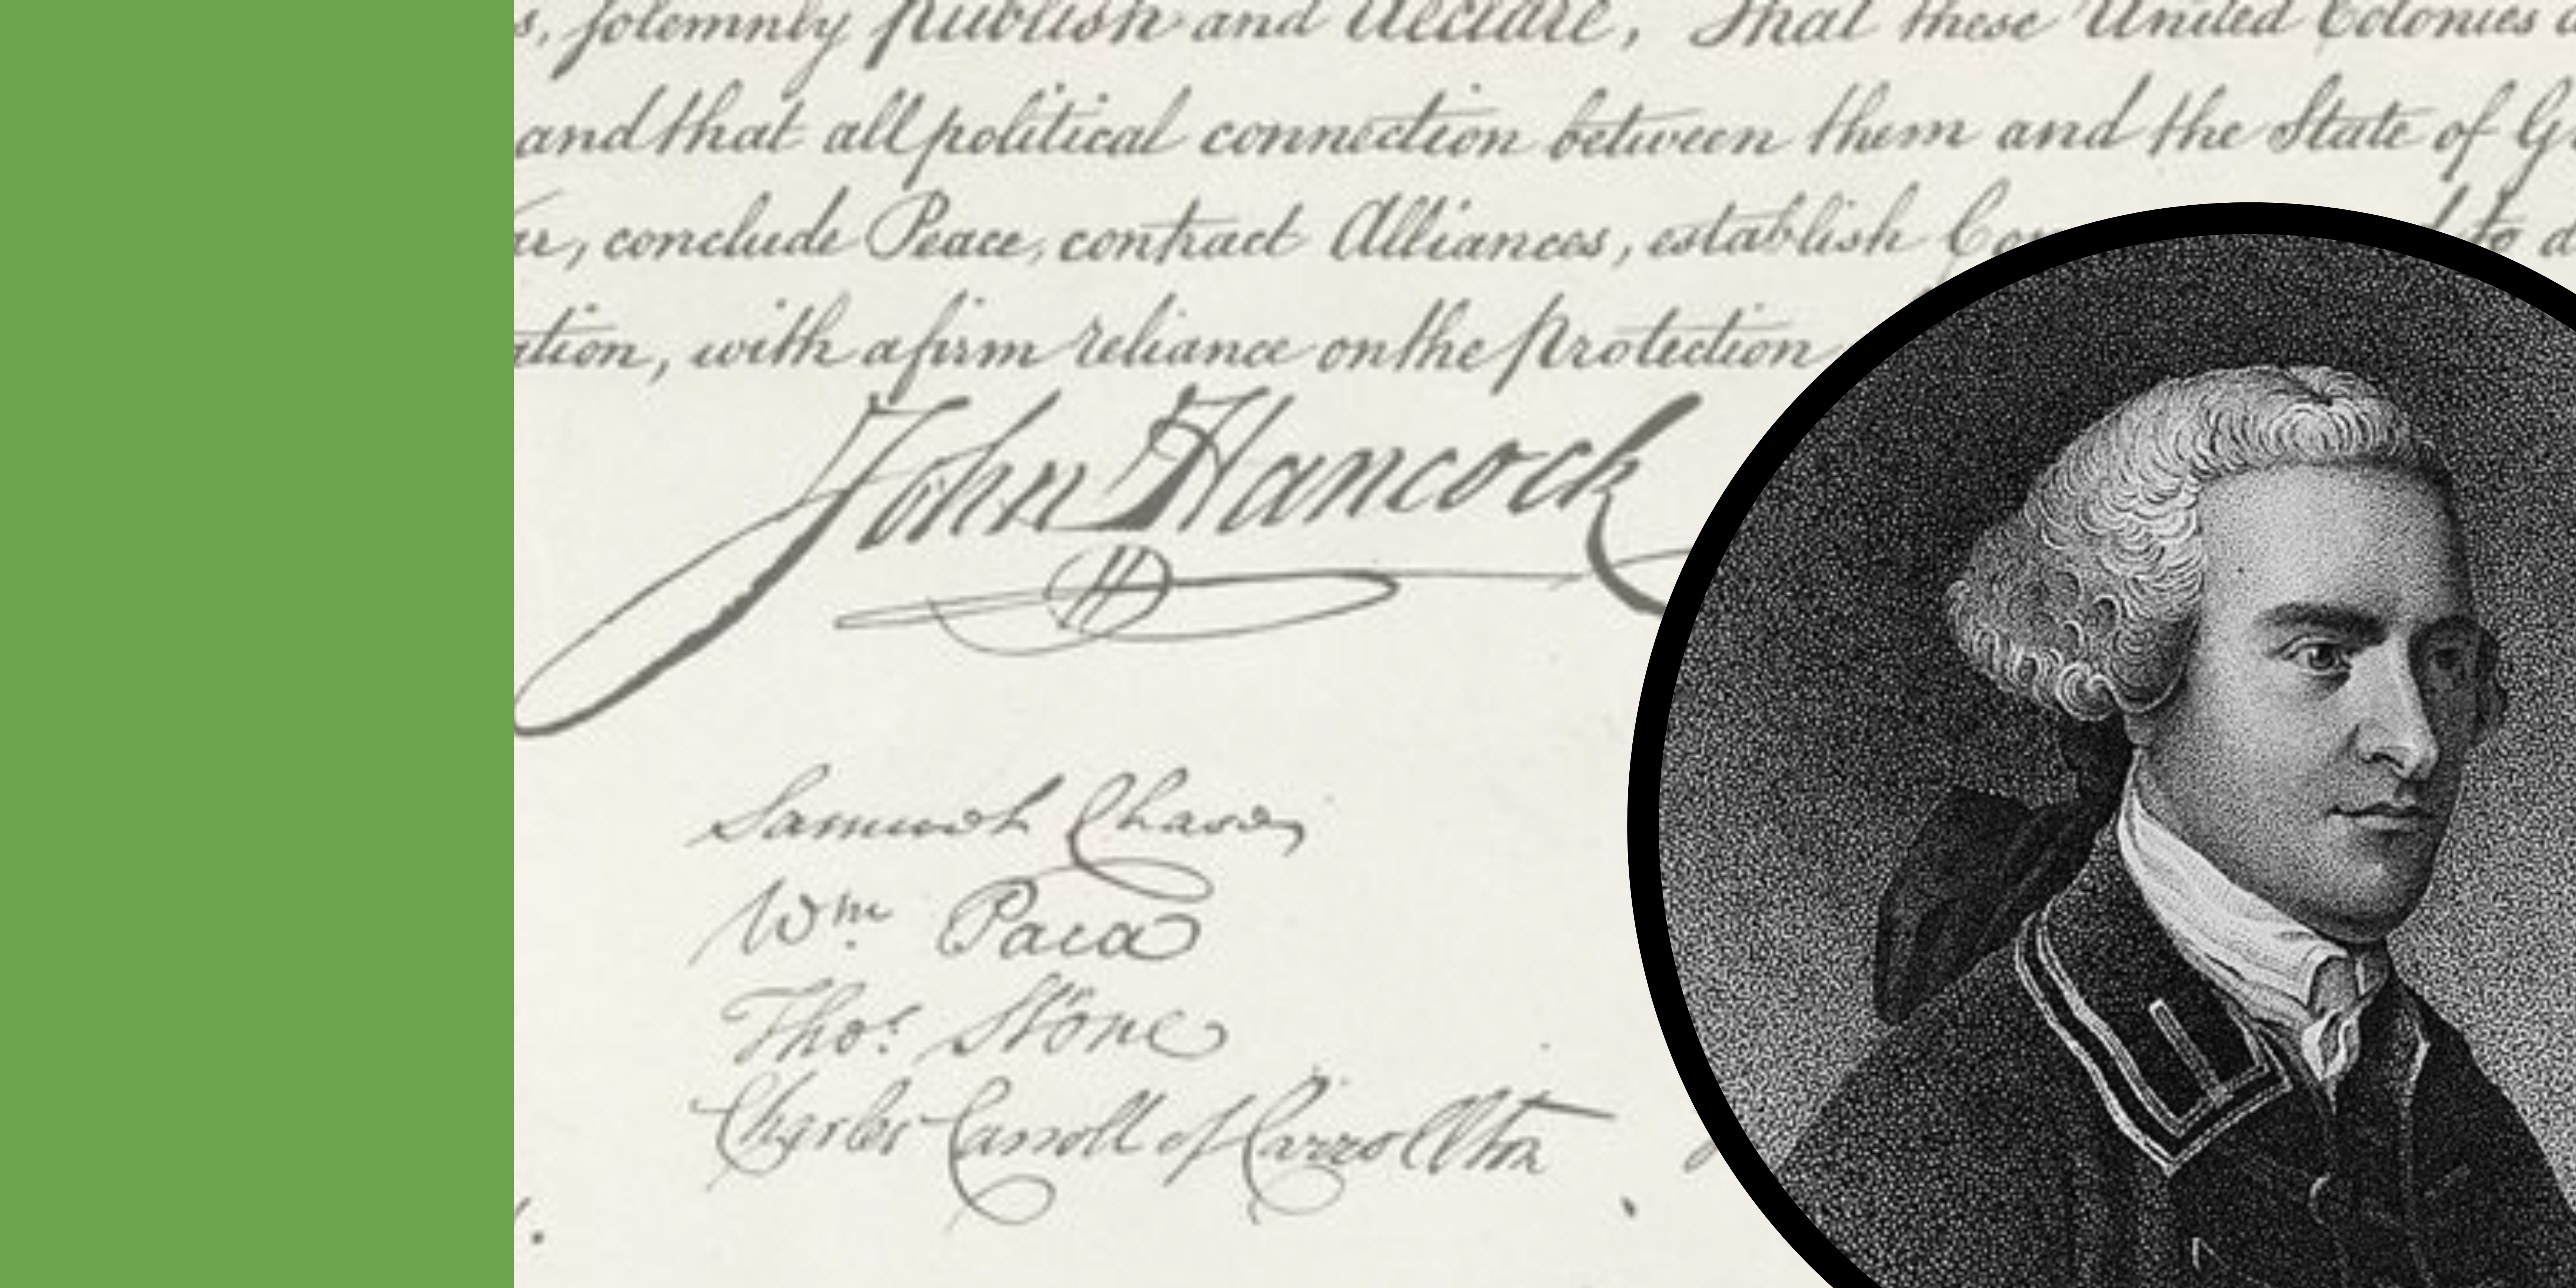 s, solemnly publish and declare, That these United Colonies
and that all political connection between them and the State of
ar, conclude Peace, contract Alliances, establish to
ation, with a firm reliance on the protection
John Hancock
Samuel Chase
Wm Paca
Thos. Stone
Charles Carroll of Carrollton